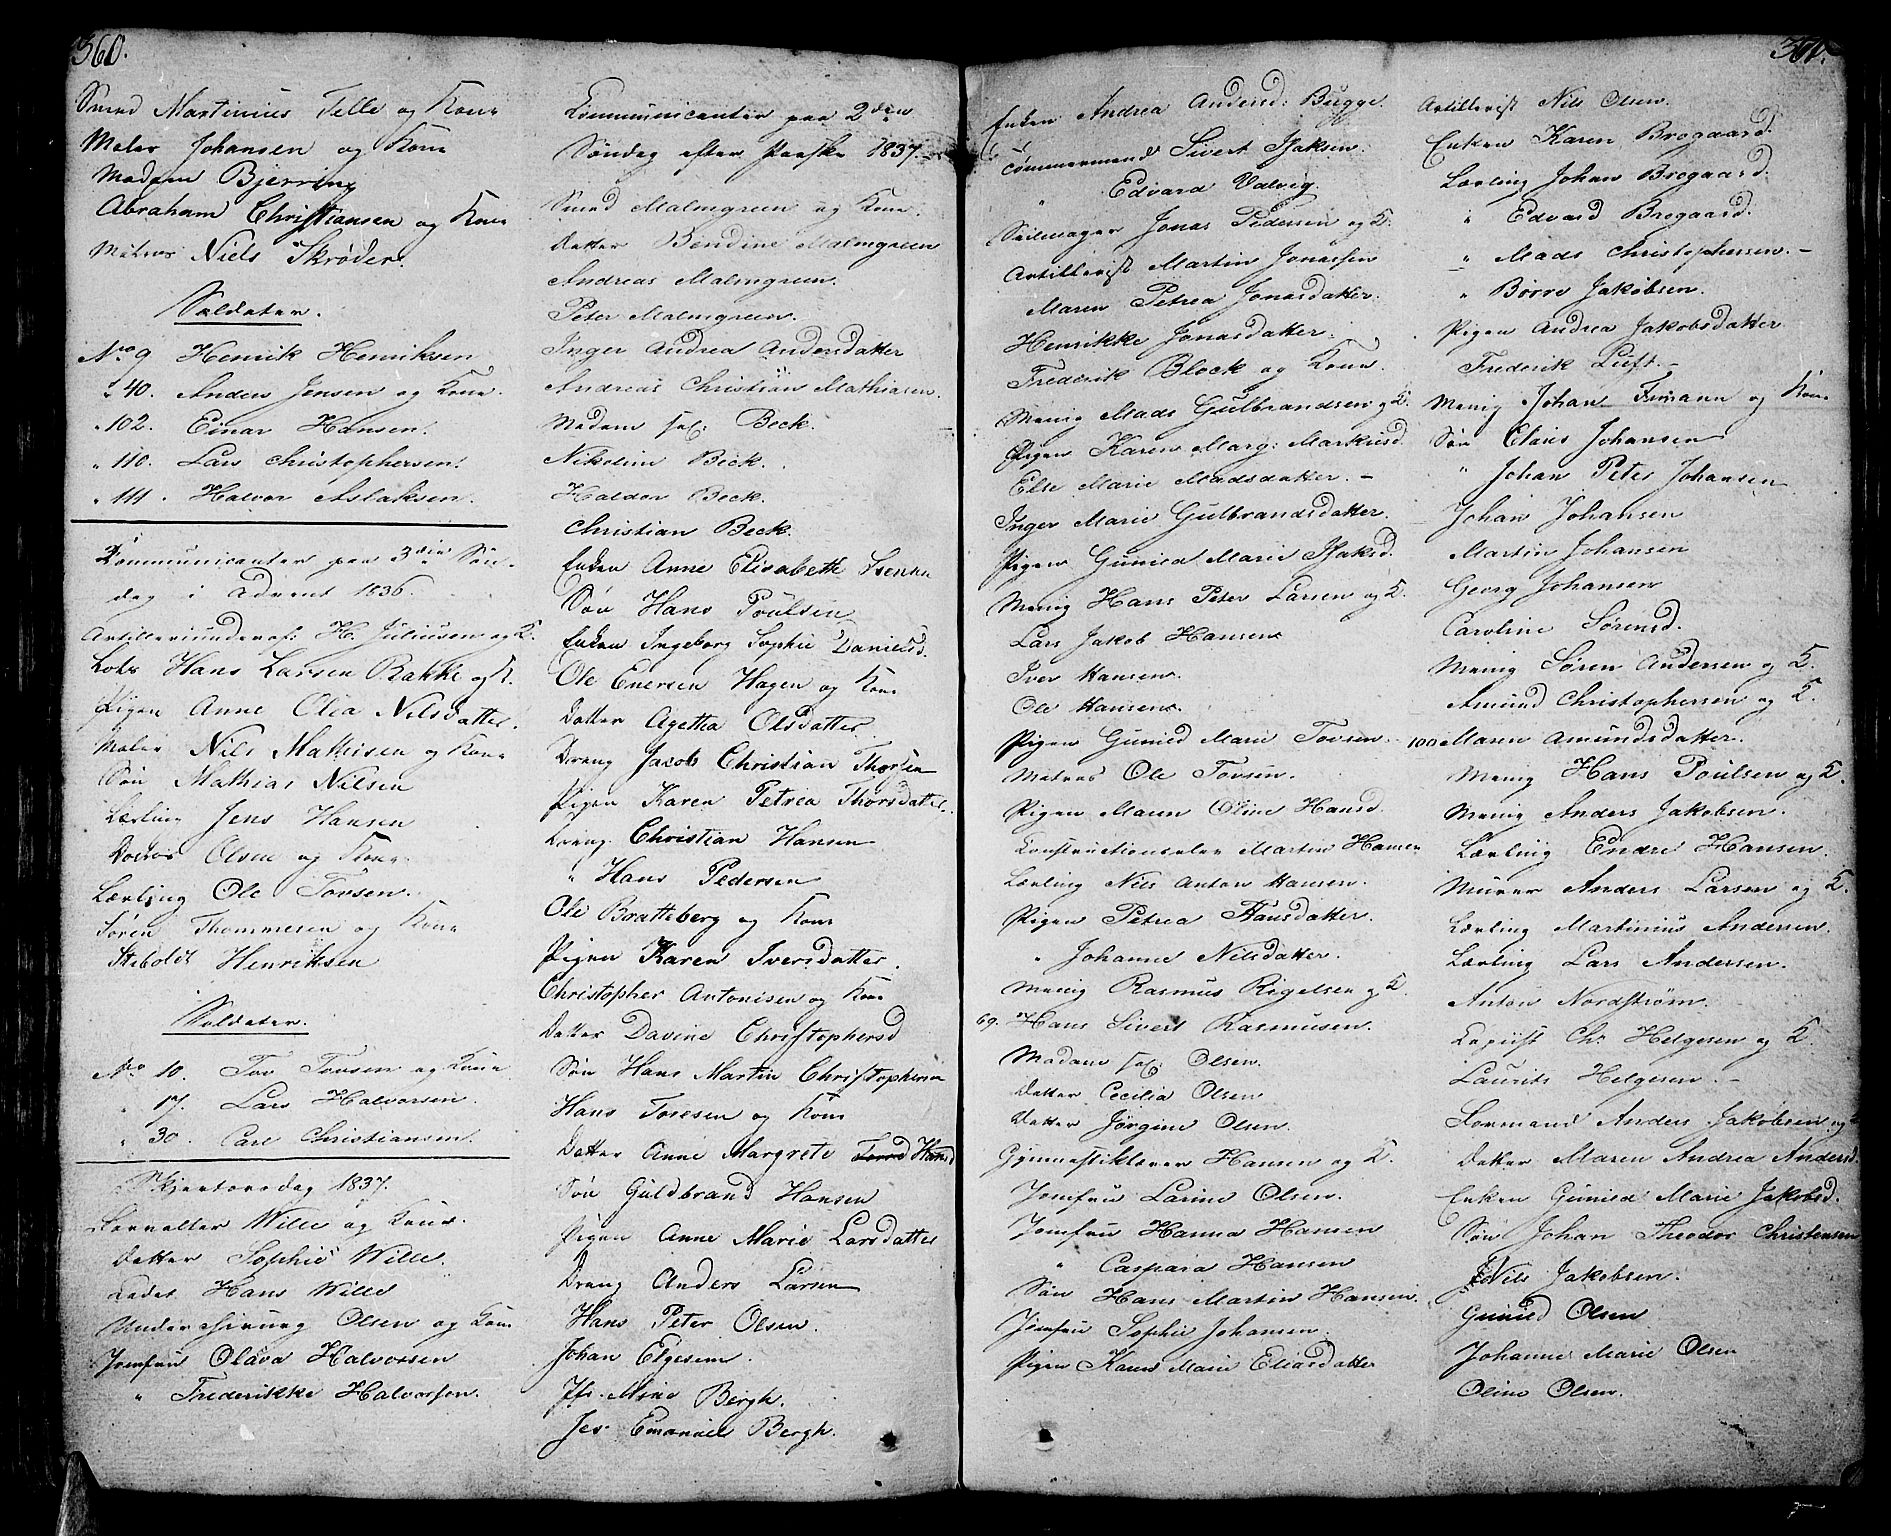 360.
Smed Martinius Telle og Kone
Maler Johansen og Kone
Madam Bjerring
Abraham Christiansen og Kone
Matros Niels Skrøder.
Soldater.
No 9 Henrik Henriksen
" 40. Anders Jensen og Kone.
" 102. Einar Hansen.
" 110. Lars Christophersen.
" 111. Halvor Aslaksen.
Communicanter paa 3die Søn-
dag i Advent 1836.
Artilleriunderof: H. Juliusen og K.
Lods Hans Larsen Bakke og K.
Pigen Anne Olea Nilsdatter.
Maler Nils Mathisen og Kone
Søn Mathias Nilsen
Lærling Jens Hansen
Doctor Olsen og Kone
Lærling Ole Torsen.
Søren Thommesen og Kone
Henriksen
Soldater.
No 10. Tov Tovsen og Kone
" 17. Lars Halvorsen.
" 30. Carl Christiansen.
Skjertorsdag 1837.
Forvalter Wille og Kone.
Datter Sophie Wille.
Cadet Hans Wille
Underchirurg Olsen og Kone
Jomfru Olava Halvorsen
" Frederikke Halvorsen.
Communicanter paa 2den
Søndag efter Paaske 1837.
Smed Malmgreen og Kone.
Datter Bendine Malmgreen
Andreas Malmgreen.
Peter Malmgreen.
Inger Andrea Andersdatter
Andreas Christian Mathiasen.
Madam sal: Beck.
Nikoline Beck.
Haldor Beck.
Christian Beck.
Enken Anne Elisabeth
Søn Hans Poulsen
Enken Ingeborg Sophie Danielsd.
Ole Enersen Hagen og Kone
Datter Agetha Olsdatter.
Dreng Jacob Christian Thorsen
Pigen Karen Petrea Thorsdatter.
Dreng Christian Hansen
" Hans Pedersen
Ole Bratteberg og Kone
Pigen Karen Iversdatter.
Christopher Antonisen og Kone
Datter Davine Christophersd
Søn Hans Martin Christophersen
Hans Toresen og Kone
Datter Anne Margrete Hansd
Søn Guldbrand Hansen
Pigen Anne Marie Larsdatter
Dreng Anders Larsen
Hans Peter Olsen.
Johan Elgesem.
Jfr. Mine Bergh.
Jes. Emanuel Bergh.
361.
Enken Andrea Andersd: Bugge.
Tømmermand Sivert Isaksen.
" Edvard Valvig.
Seilmager Jonas Pedersen og K.
Artillerist Martin Jonassen
Maren Petrea Jonasdatter.
Henrikke Jonasdatter.
Frederik Block og Kone.
Menig Mads Gulbrandsen og K.
Pigen Karen Marg: Markusd.
Else Marie Madsdatter. -
Inger Marie Gulbrandsdatter.
Pigen Gunild Marie Isaksd.
Menig Hans Peter Larsen og K.
Lars Jakob Hansen
Iver Hansen.
Ole Hansen.
Pigen Gunild Marie Tovsen.
Matros Ole Tovsen.
Pigen Maren Oline Hansd.
Constructionselev Martin Hansen
Lærling Nils Anton Hansen.
Pigen Petrea Hansdatter.
" Johanne Nilsdatter.
Menig Rasmus Rigelsen og K.
69. Hans Sivert Rasmusen.
Madam sal: Olsen.
Datter Cecilia Olsen
Datter Jørgine Olsen.
Gymnastiklærer Hansen og K.
Jomfru Larine Olsen.
Jomfru Hanna Hansen
" Caspara Hansen
Søn Hans Martin Hansen.
Jomfru Sophie Johansen.
Pigen Karen Marie Eliasdatter
Artillerist Nils Olsen.
Enken Karen Brogaard.
Lærling Johan Brogaard.
" Edvard Brogaard.
" Mads Christophersen. -
" Børre Jakobsen.
Pigen Andrea Jakobsdatter
Frederik Luft. -
Menig Johan og Kone
Søn Claus Johansen
" Johan Peter Johansen
Johan Johansen
Martin Johansen
Georg Johansen
Caroline Sørensd.
Menig Søren Andersen og K.
Amund Christophersen og K.
100 Maren Amundsdatter.
Menig Hans Poulsen og K.
Menig Anders Jakobsen.
Lærling Endre Hansen.
Murer Anders Larsen og K.
Lærling Martinius Andersen.
Lærling Lars Andersen.
Anton Nordstrøm.
Copiist Chr. Helgesen og K
Laurits Helgesen. -
Formand Anders Jakobsen og K
Datter Maren Andrea Andersd.
Enken Gunild Marie Jakobsd.
Søn Johan Theodor Christensen
Nils Jakobsen.
Gunild Olsen
Johanne Marie Olsen
Oline Olsen.